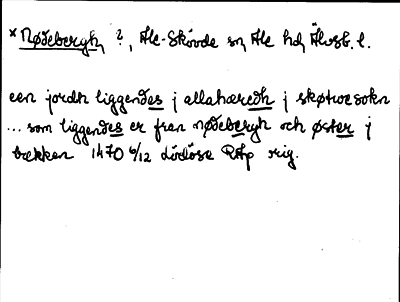 * Nødebergh ?, Ale-Skövde sn, Ale hd, Älvsb. l.
een jordh liggendes j allahæredh j skøtwe sokn
... som liggendes er fran nødebergh och øster j
bekken 1470 6/12 Lödöse RAp orig.